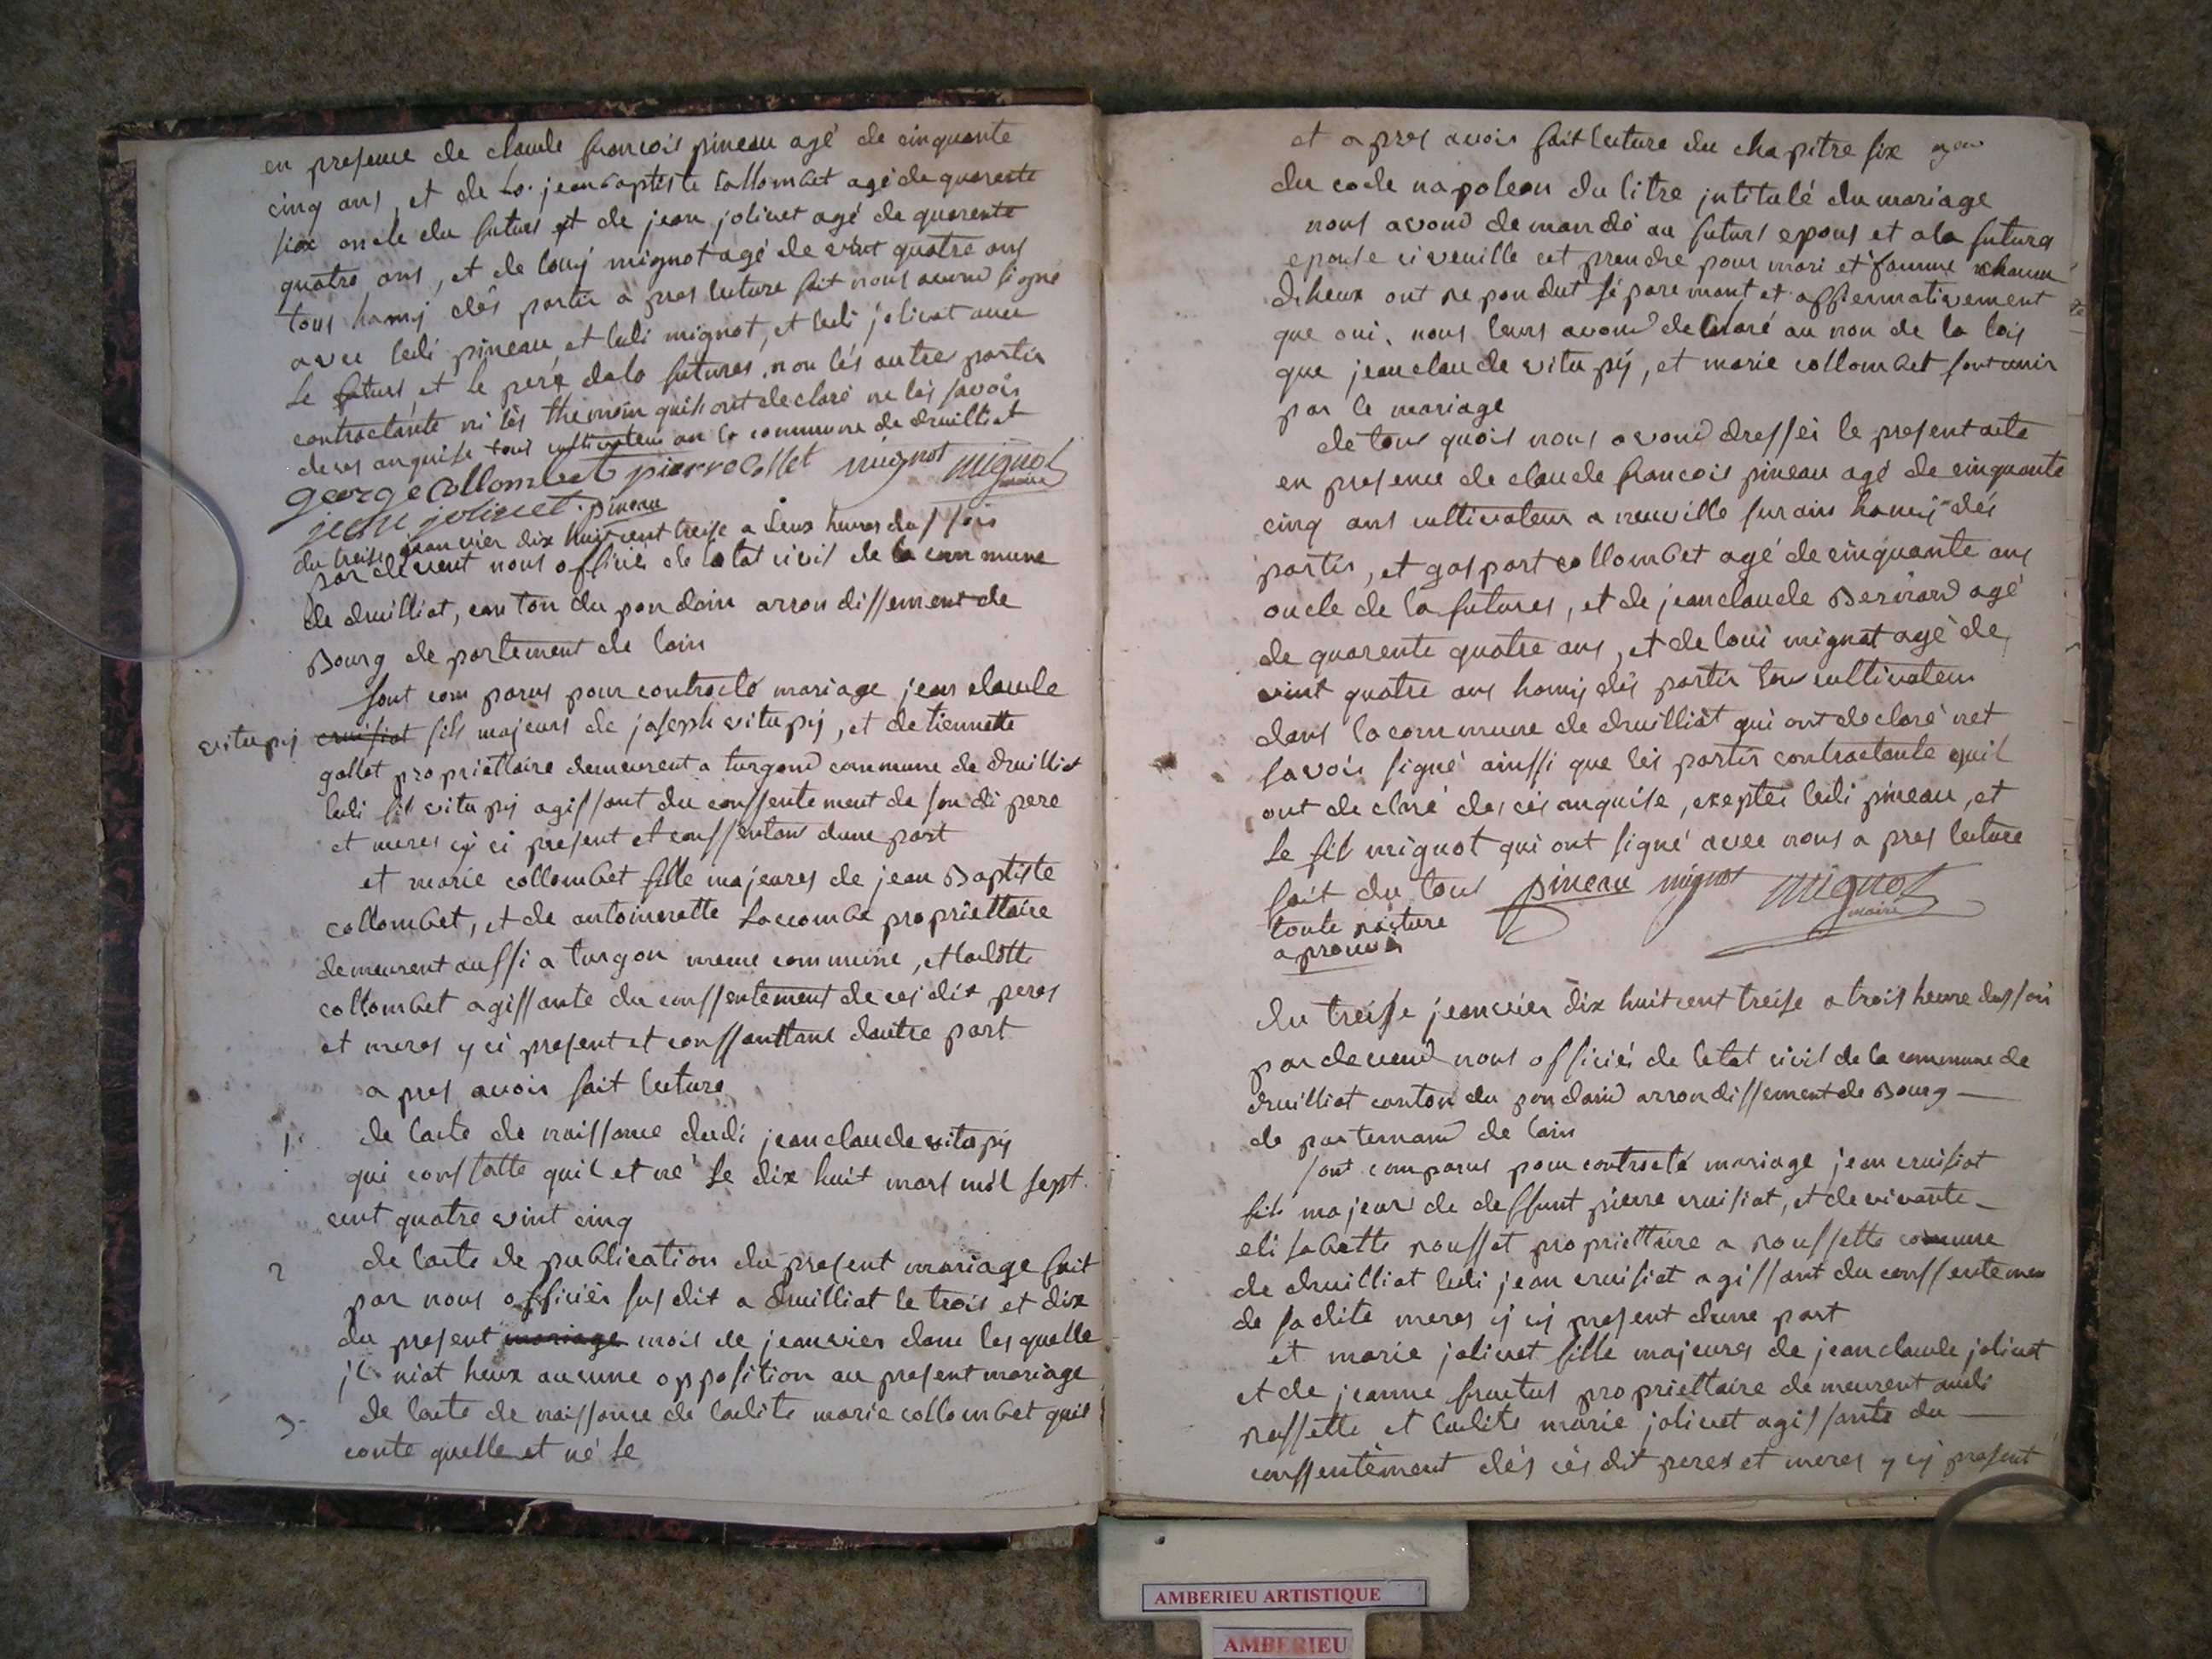 en presence de claude francois pineau agé de cinquante
cinq ans, et de jean baptiste Collombet agé de quarente
six oncle du futurs et de jean jolivet agé de quarente
quatre ans, et de louij mignot agé de vint quatre ans
tous hamij dés partis a pres luture fait nous avond signé
avec ledi pineau, et ledi mignot, et ledi jolivet avec
le futurs et le perés dela futures, non lés autres partis
contractante ni lés themoin quils ont declaré ne lés savoir
deces anquise tous cultivateur an la commune de druilliat
george Collombet pierre Collet mignot mignot
maire
jean jolivet pineau
du treise jeanvier dix huit cent treise a deux heures dus soir
par devent nous officiés de létat civil de la commune
de druilliat, canton du pondain arrondissement de
Bourg departement de lain
sont comparus pour contracté mariage jean claude
vitupij cruisiat fils majeurs de joseph vitupij, et de tiennette
gallet propriettaire demeurent a turgond commune de druilliat
ledi fil vitupij agissant du conssentement de son di pere
et meres cy ci present et conssentans dune part
et marie collombet fille majeures de jean Baptiste
collombet, et de antoinnette Laccombe propriettaire
demeurent aussi a turgon meme commune, et ladite
collombet agissante du conssentement de ces dit peres
et meres y ci present et conssanttans dautre part
a pres avoir fait luture
1. de lacte de naissance dudi jean claude vitupij
qui consstatte quil et né le dix huit mars mil sept
cent quatre vint cinq
2 de lacte de publication du present mariage fait
par nous officiés susdit a druilliat le trois et dix
du present mariage mois de jeanvier dans lesquelle
jl niat heux aucune opposition au present mariage
3- de lacte de naissance de ladite marie collombet quil
conte quelle et né le
et a pres avoir fait luture du chapitre six
du code napoleon du litre jntitulé du mariage
nous avond demandé au futurs epous et ala futura
epouse ci veuille cet prendre pour mari et famme chacun
deheux ont repondut séparemant et affiermativement
que oui, nous leurs avond declaré au non de la lois
que jean claude vitupij, et marie collombet sont unis
par le mariage
de tous quois nous avond dressei le present acte
en presence de claude francois pineau agé de cinquante
cinq ans cultivateur a neuville sur ain hamij dés
partis, et gaspart collombet agé de cinquante ans
oncle de la futures, et de jean claude Berirard agé
de quarente quatre ans, et de loui mignot agé de
vint quatre ans hamij dés partis tous cultivateur
dans la commune de druilliat qui ont declaré net
savoir signé ainssi que lés partis contractante quil
ont declaré des cés anquise, exeptes ledi pineau, et
le fils mignot qui ont signé avec nous a pres luture
fait du tous pineau mignot mignot
maire
toute rasture
aprouvés
du treise jeanvier dix huit cent treise a trois heure dus soir
par devend nous officiés de letat civil de la commune de
druilliat canton du pondaind arrondissement de Bourg
departemand de lain
sont comparus pour contracté mariage jean cruisiat
fils majeur de deffunt pierre cruisiat, et de vivante
elisabette rousset propriettaire a roussette commune
de druilliat ledi jean cruisiat agissant du conssentemen
de sadite meres y cy present dune part
et marie jolivet fille majeures de jean claude jolivet
et de jeanne fructus propriettaire demeurent audi
rossette et ladite marie jolivet agissante du
conssentement dés cés dit peres et meres y cy present